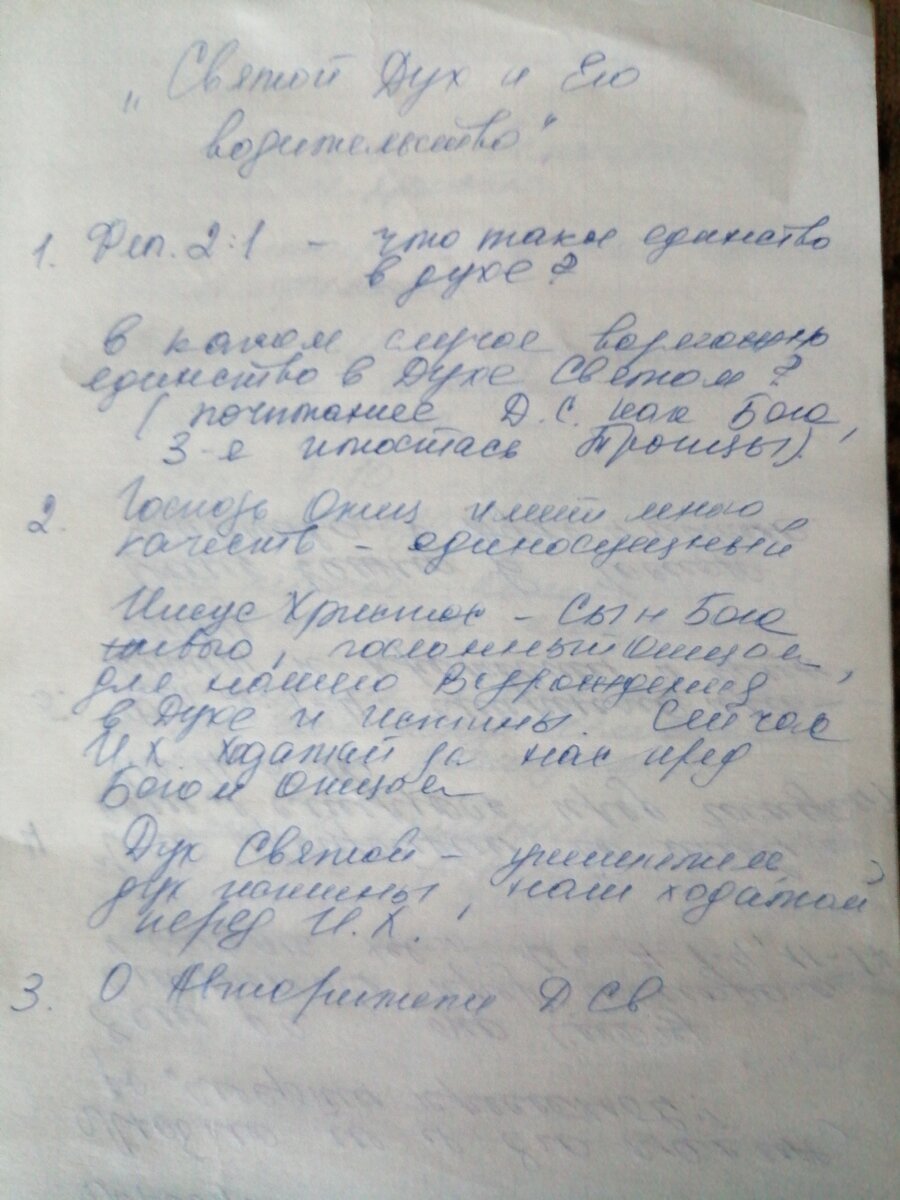 „Святой Дух и Его
водительство"
1. Фел. 2:1 – что такое единство
в духе?
в каком случае возможно
единство в Духе Святом?
(почитание Д.С. как Бога,
3-я ипостась Троицы).
2. Господь Отец имеет много
качеств – единосущный
Иисус Христос – Сын Бога
живого, посланный Отцом,
для нашего Возрождения
в Духе и истины. Сейчас
И.Х. ходатай за нас пред
Богом Отцом
Дух Святой – утешитель,
дух истины, наш ходатай
перед И.Х.
3. О Авторитете Д Св